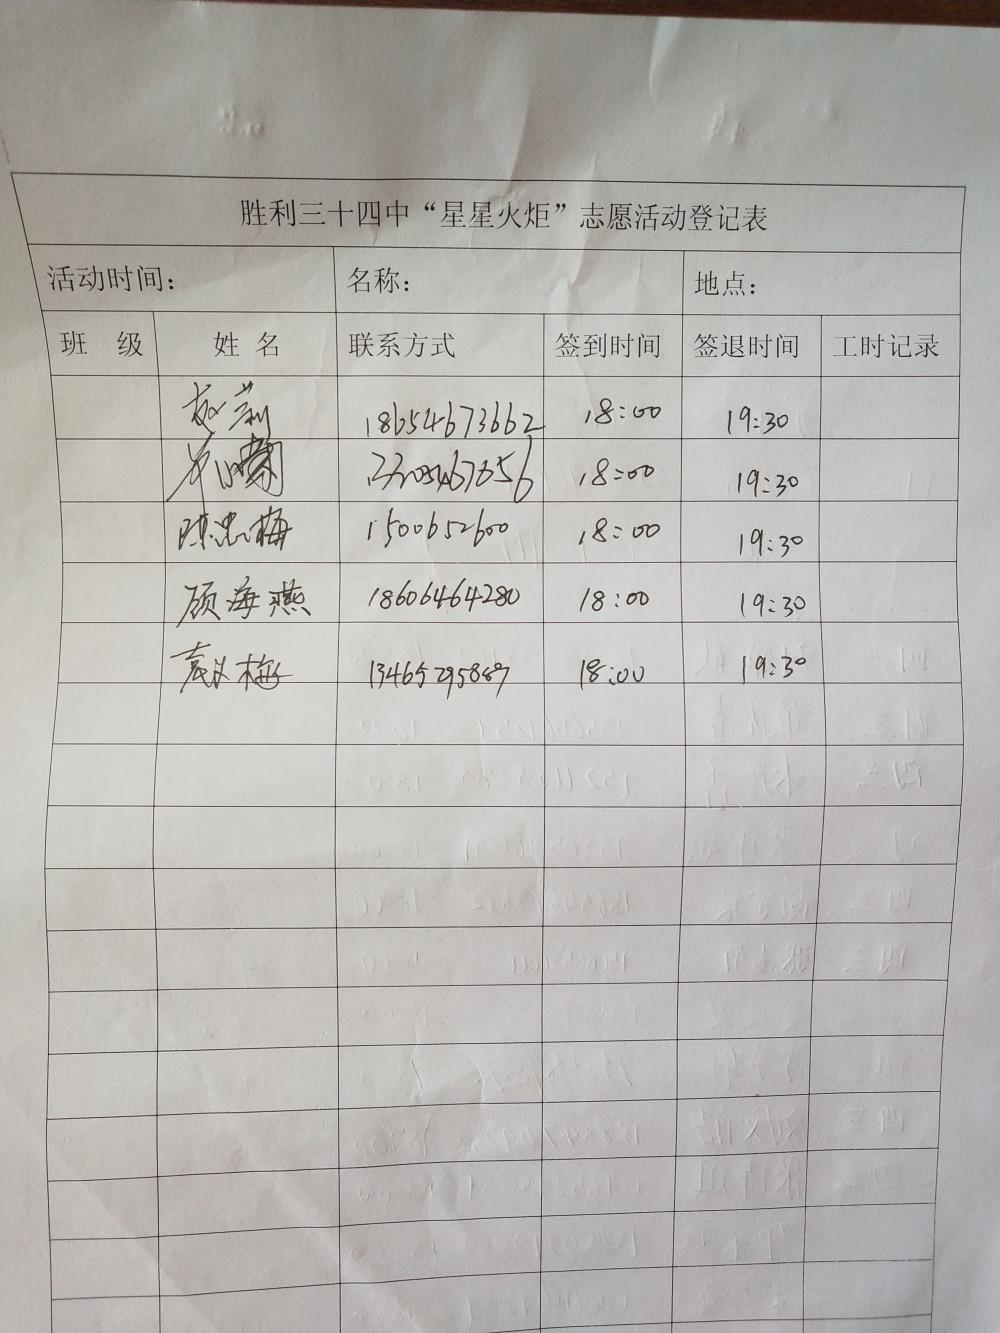 胜利三十四中“星星火炬”志愿活动登记表
活动时间： 名称： 地点：
班 级 姓 名 联系方式 签到时间 签退时间 工时记录
18654673662 18:00 19:30
18:00 19:30
陈忠梅 1500652600 18:00 19:30
顾海燕 18606464280 18:00 19:30
梅 13465295887 18:00 19:30